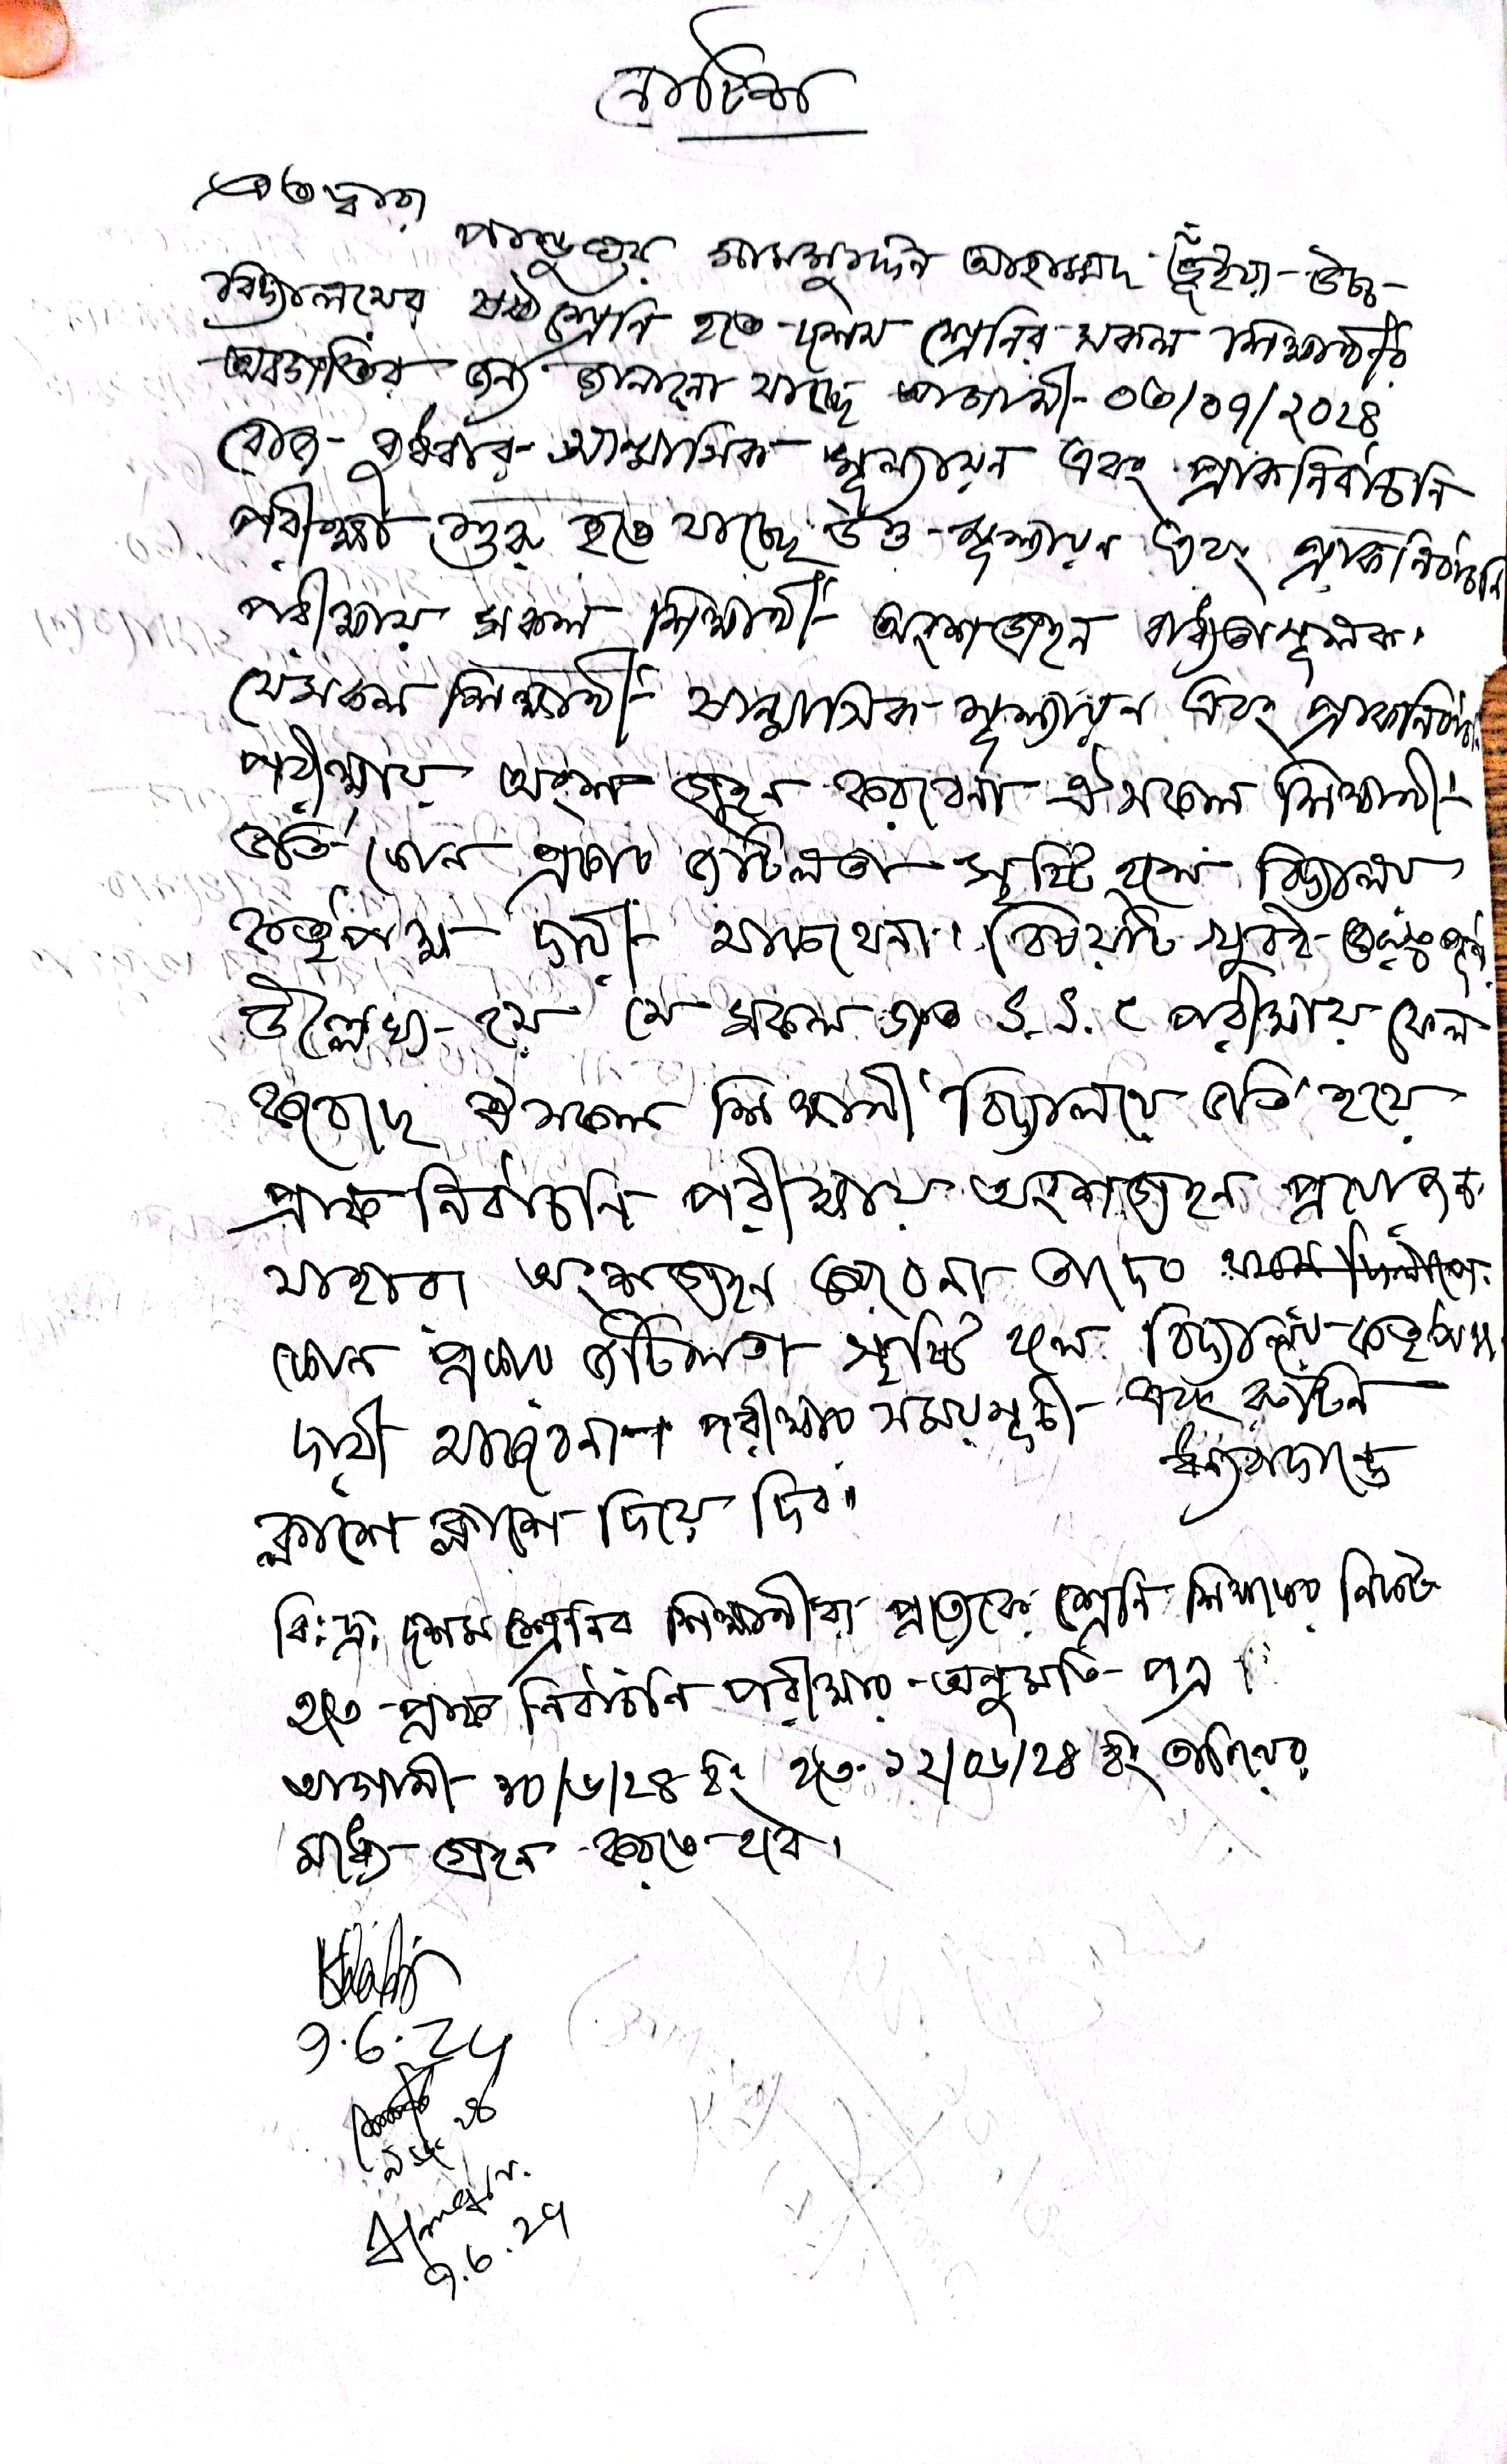 নোটিশ
এতদ্বারা
শামসুদ্দিন আহাম্মদ ভূঁইয়া উচ্চ
বিদ্যালয়ের ষষ্ঠ শ্রেনি হতে দশম শ্রেনির সকল শিক্ষার্থীর
অবগতির জন্য জানানো যাচ্ছে আগামী- ০৩/০৭/২০২৪
রোজ- বুধবার- ষান্মাসিক মূল্যায়ন এবং প্রাক নির্বাচনি
পরীক্ষা শুরু হতে যাচ্ছে উক্ত - মূল্যায়ন এবং প্রাক নির্বাচনি
পরীক্ষায় সকল শিক্ষার্থী অংশগ্রহন বাধ্যতামূলক।
যেসকল শিক্ষার্থী ষান্মাসিক- মূল্যায়ন এবং প্রাকনির্বাচনি
পরীক্ষায় অংশ গ্রহন করবেনা ঐসকল শিক্ষার্থী
কোন প্রকার জটিলতা সৃষ্টি হলে বিদ্যালয়
কর্তৃপক্ষ দায়ী থাকবেনা। বিষয়টি খুবই গুরুত্বপূর্ণ
উল্লেখ্য- যে সকল ছাত্র S.S.C পরীক্ষায় ফেল
করেছে ঐসকল শিক্ষার্থী বিদ্যালয়ে ভর্তি হয়ে
প্রাক নির্বাচনি পরীক্ষায় অংশগ্রহন
যাহারা অংশগ্রহন করবেনা তাদের
কোন প্রকার জটিলতা সৃষ্টি হলে বিদ্যালয় কর্তৃপক্ষ
দায়ী থাকবেনা। পরীক্ষার সময়সূচী- এবং রুটিন
ক্লাশে ক্লাশে দিয়ে দিব।
ধন্যবাদান্তে
বি: দ্র: দশম শ্রেনির শিক্ষার্থীরা প্রত্যেকে শ্রেনি শিক্ষকের নিকট
হতে- প্রাক নির্বাচনি পরীক্ষার - অনুমতি- পত্র
আগামী ১০/৬/২৪ ইং হতে ১২/০৬/২৪ ইং তারিখের
মধ্যে গ্রহন করতে হবে।
9.6.24
9.6.24